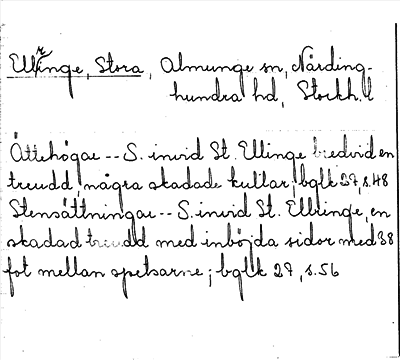 Ellringe, Stora, Almunge sn, Närding-
hundra hd, Stockh. l
Ättehögar -- S. invid St. Ellinge bredvid en
treudd, några skadade kullar; bglk 27, s. 48
Stensättningar -- S. invid St. Ellringe, en
skadad treudd med inböjda sidor med 38
fot mellan spetsarne; bglk 27, s. 56